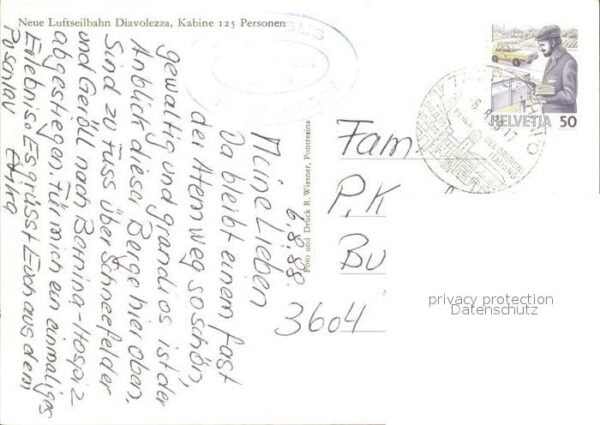 Neue Luftseilbahn Diavolezza, Kabine 125 Personen
6.8.88.
Meine Lieben
Da bleibt einem fast
der Atem weg so schön,
gewaltig und grandios ist der
Anblick dieser Berge hier oben.
Sind zu Fuss über Schneefelder
und Geröll nach Bernina-Hospiz
abgestiegen. Für mich ein einmaliges
Erlebnis. Es grüsst Euch aus dem
Foto und Druck R. Wiesner, Pontresina
HELVETIA 50
Fam.
P. K
Bu
3604
privacy protection
Datenschutz